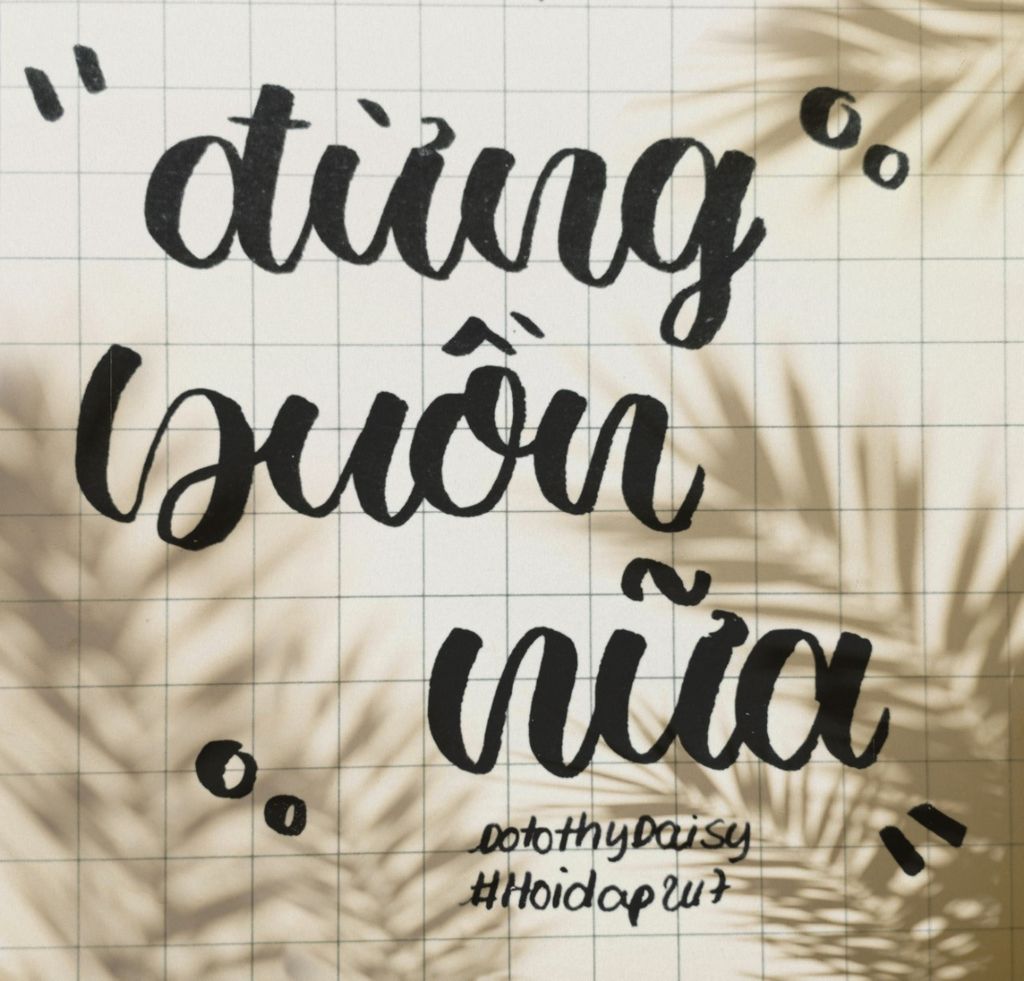 "đừng
buồn
nữa"
DotothyDaisy
#Hoidap247